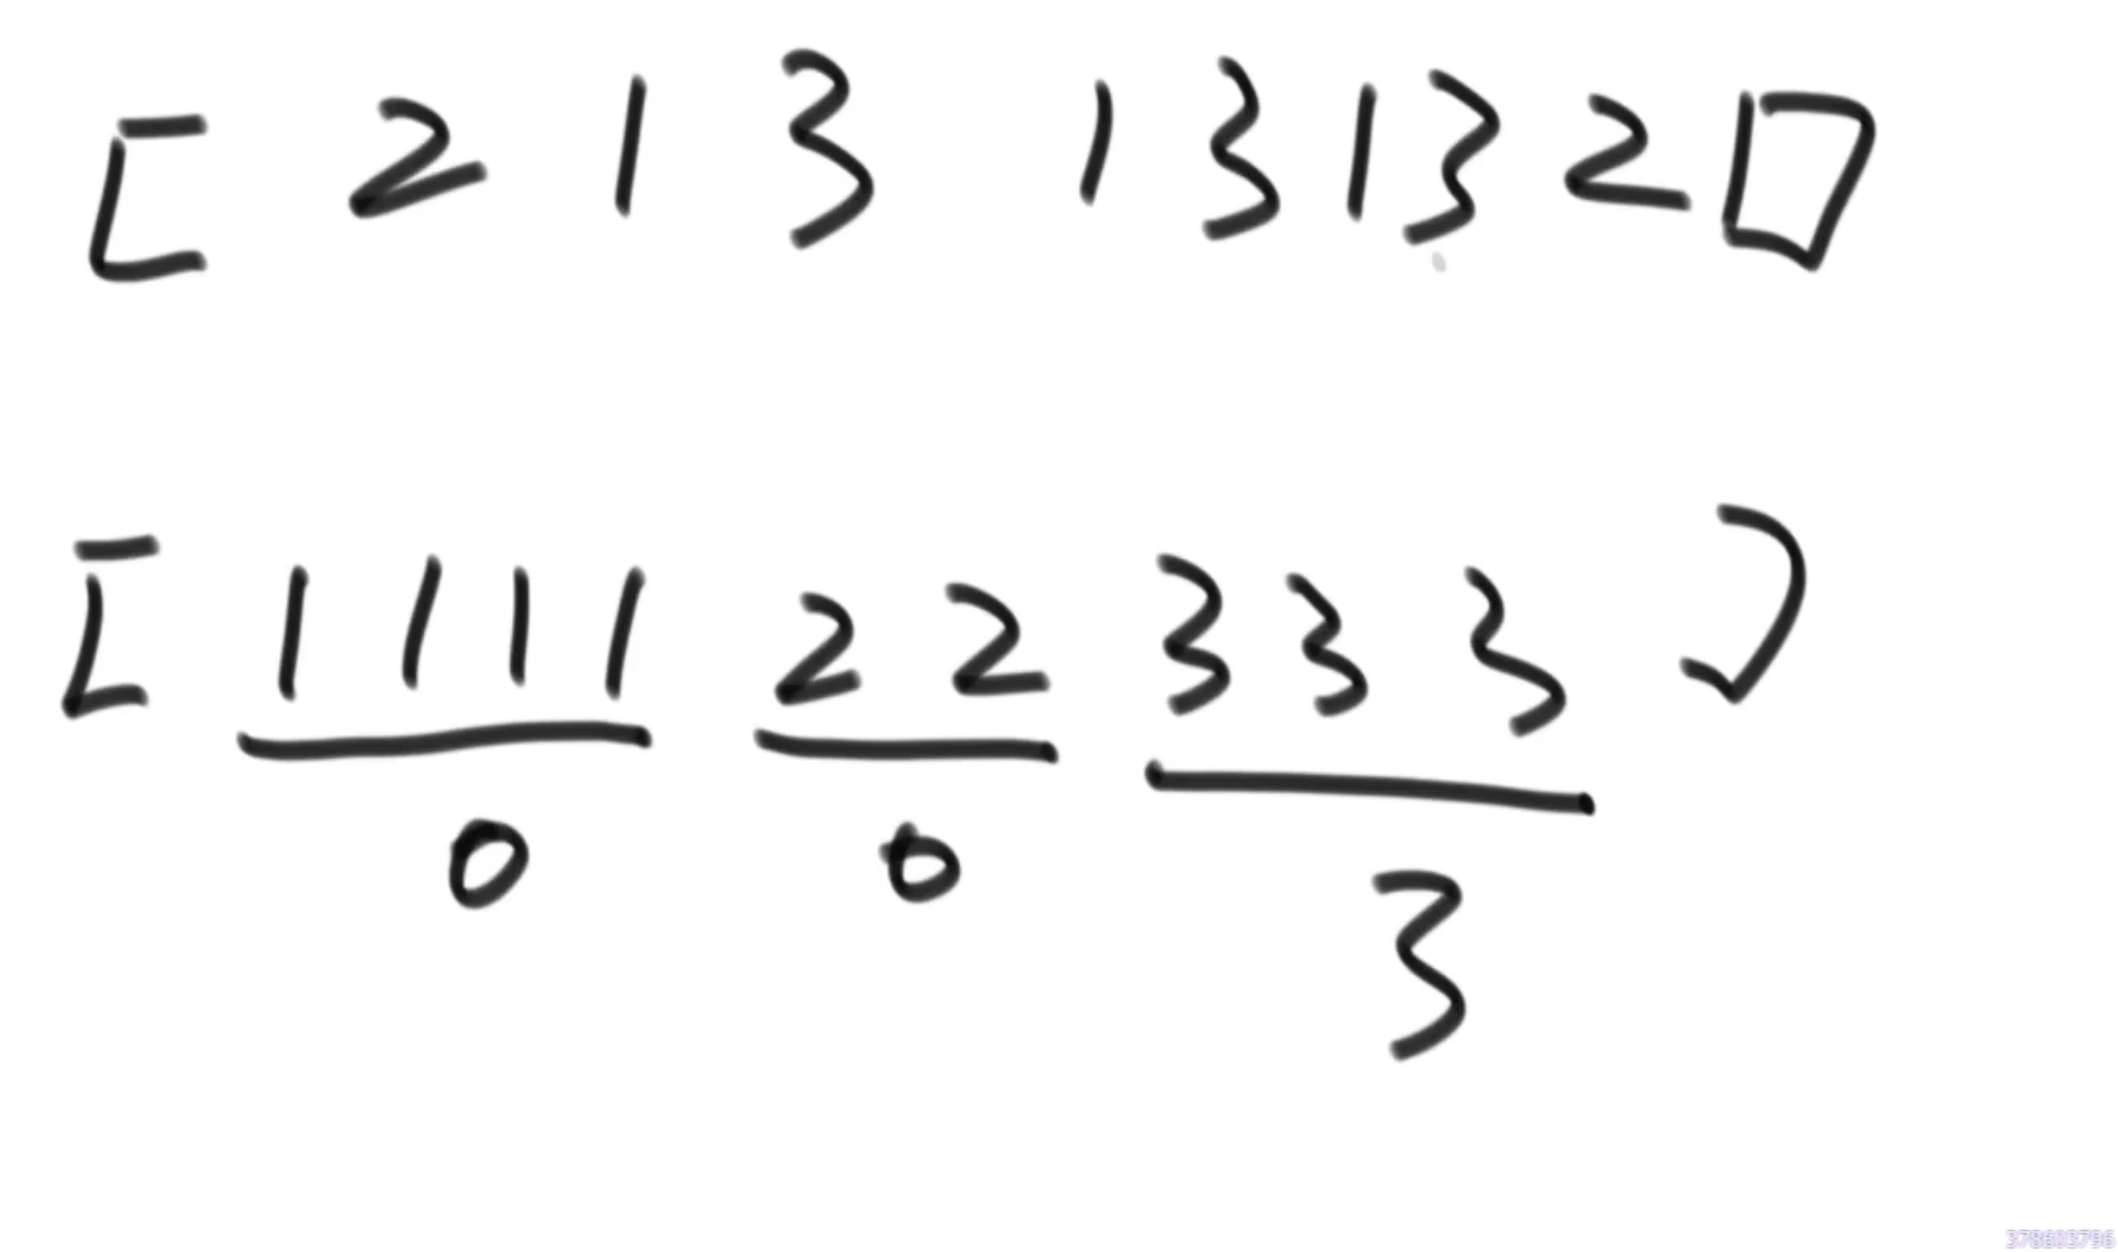 [ 2 1 3 1 3 1 3 2 ]
[ 1 1 1 1 2 2 3 3 3 ]
0 0 3
378603796